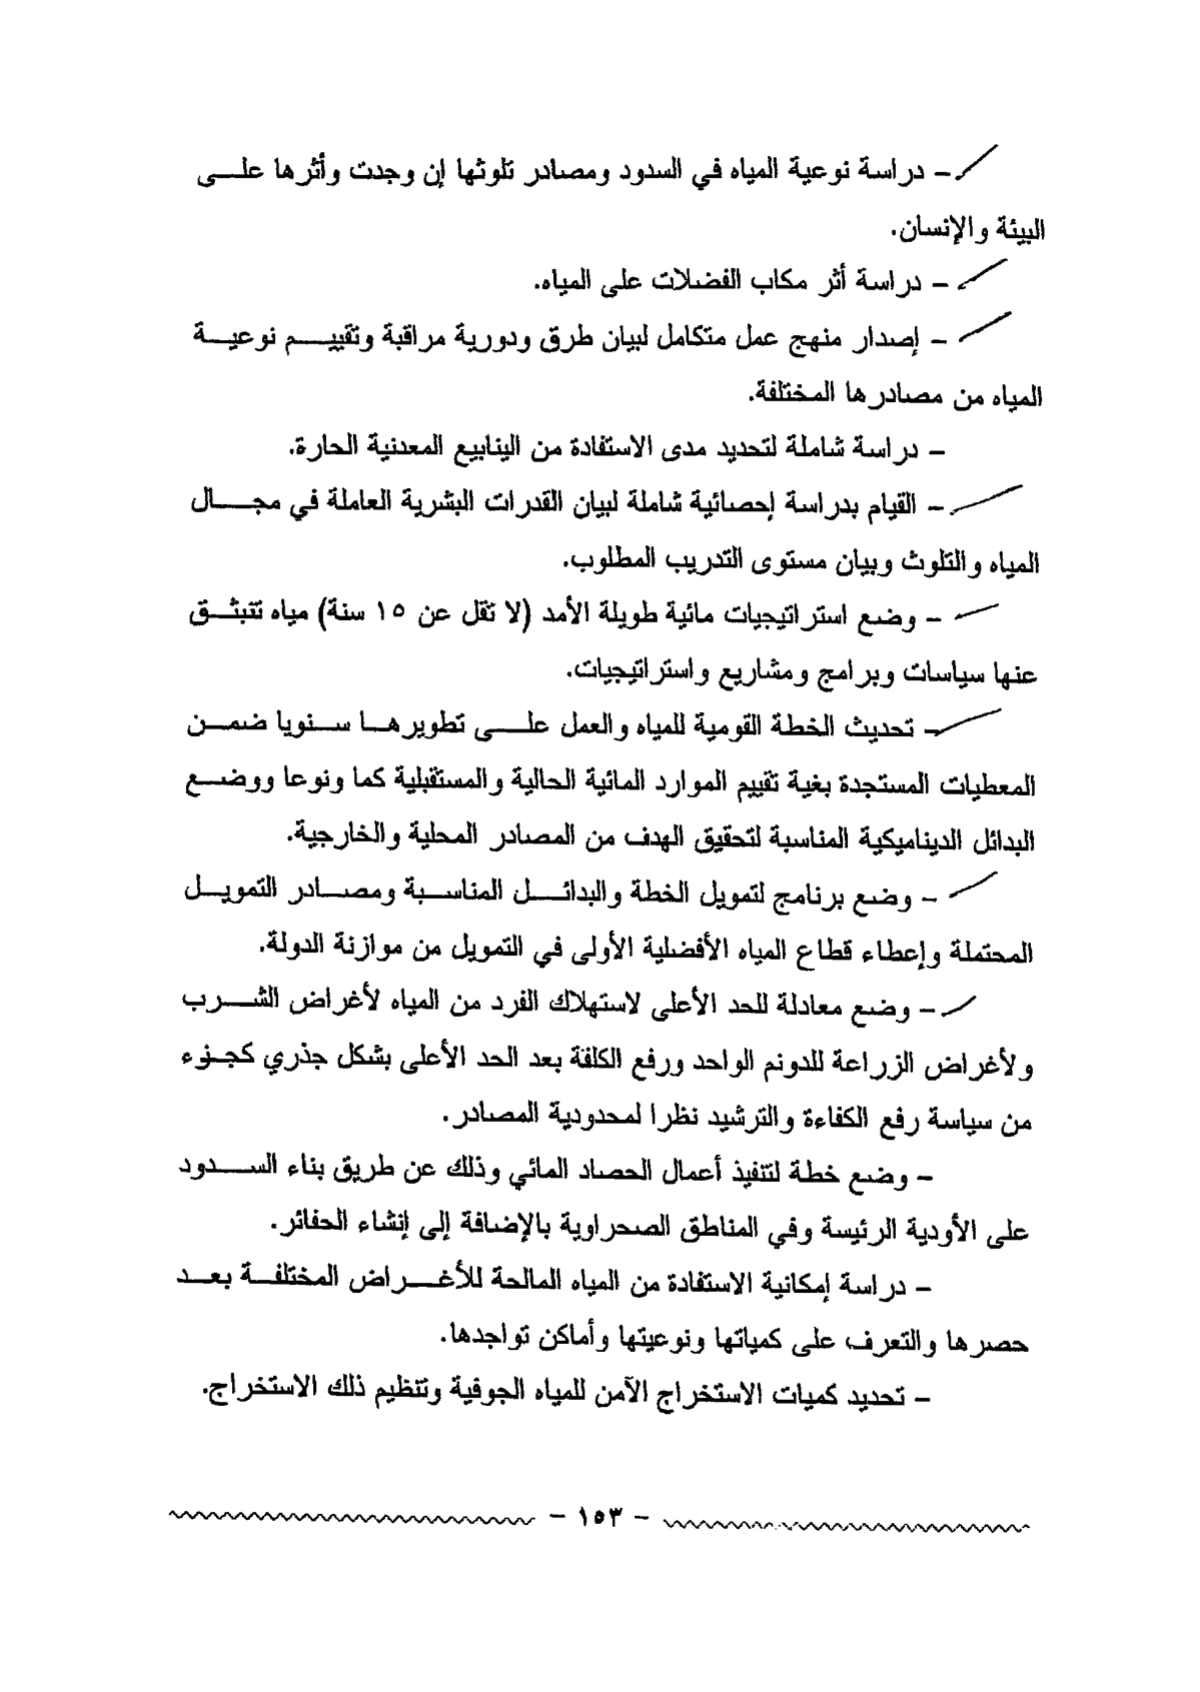 – دراسة نوعية المياه في السدود ومصادر تلوثها إن وجدت وأثرها على
البيئة والإنسان.
– دراسة أثر مكاب الفضلات على المياه.
– إصدار منهج عمل متكامل لبيان طرق ودورية مراقبة وتقييم نوعية
المياه من مصادرها المختلفة.
– دراسة شاملة لتحديد مدى الاستفادة من الينابيع المعدنية الحارة.
– القيام بدراسة إحصائية شاملة لبيان القدرات البشرية العاملة في مجال
المياه والتلوث وبيان مستوى التدريب المطلوب.
– وضع استراتيجيات مائية طويلة الأمد (لا تقل عن ١٥ سنة) مياه تنبثق
عنها سياسات وبرامج ومشاريع واستراتيجيات.
– تحديث الخطة القومية للمياه والعمل على تطويرها سنويا ضمن
المعطيات المستجدة بغية تقييم الموارد المائية الحالية والمستقبلية كما ونوعا ووضع
البدائل الديناميكية المناسبة لتحقيق الهدف من المصادر المحلية والخارجية.
– وضع برنامج لتمويل الخطة والبدائل المناسبة ومصادر التمويل
المحتملة وإعطاء قطاع المياه الأفضلية الأولى في التمويل من موازنة الدولة.
– وضع معادلة للحد الأعلى لاستهلاك الفرد من المياه لأغراض الشرب
ولأغراض الزراعة للدونم الواحد ورفع الكلفة بعد الحد الأعلى بشكل جذري كجزء
من سياسة رفع الكفاءة والترشيد نظرا لمحدودية المصادر.
– وضع خطة لتنفيذ أعمال الحصاد المائي وذلك عن طريق بناء السدود
على الأودية الرئيسة وفي المناطق الصحراوية بالإضافة إلى إنشاء الحفائر.
– دراسة إمكانية الاستفادة من المياه المالحة للأغراض المختلفة بعد
حصرها والتعرف على كمياتها ونوعيتها وأماكن تواجدها.
– تحديد كميات الاستخراج الآمن للمياه الجوفية وتنظيم ذلك الاستخراج.
– ١٥٣ –